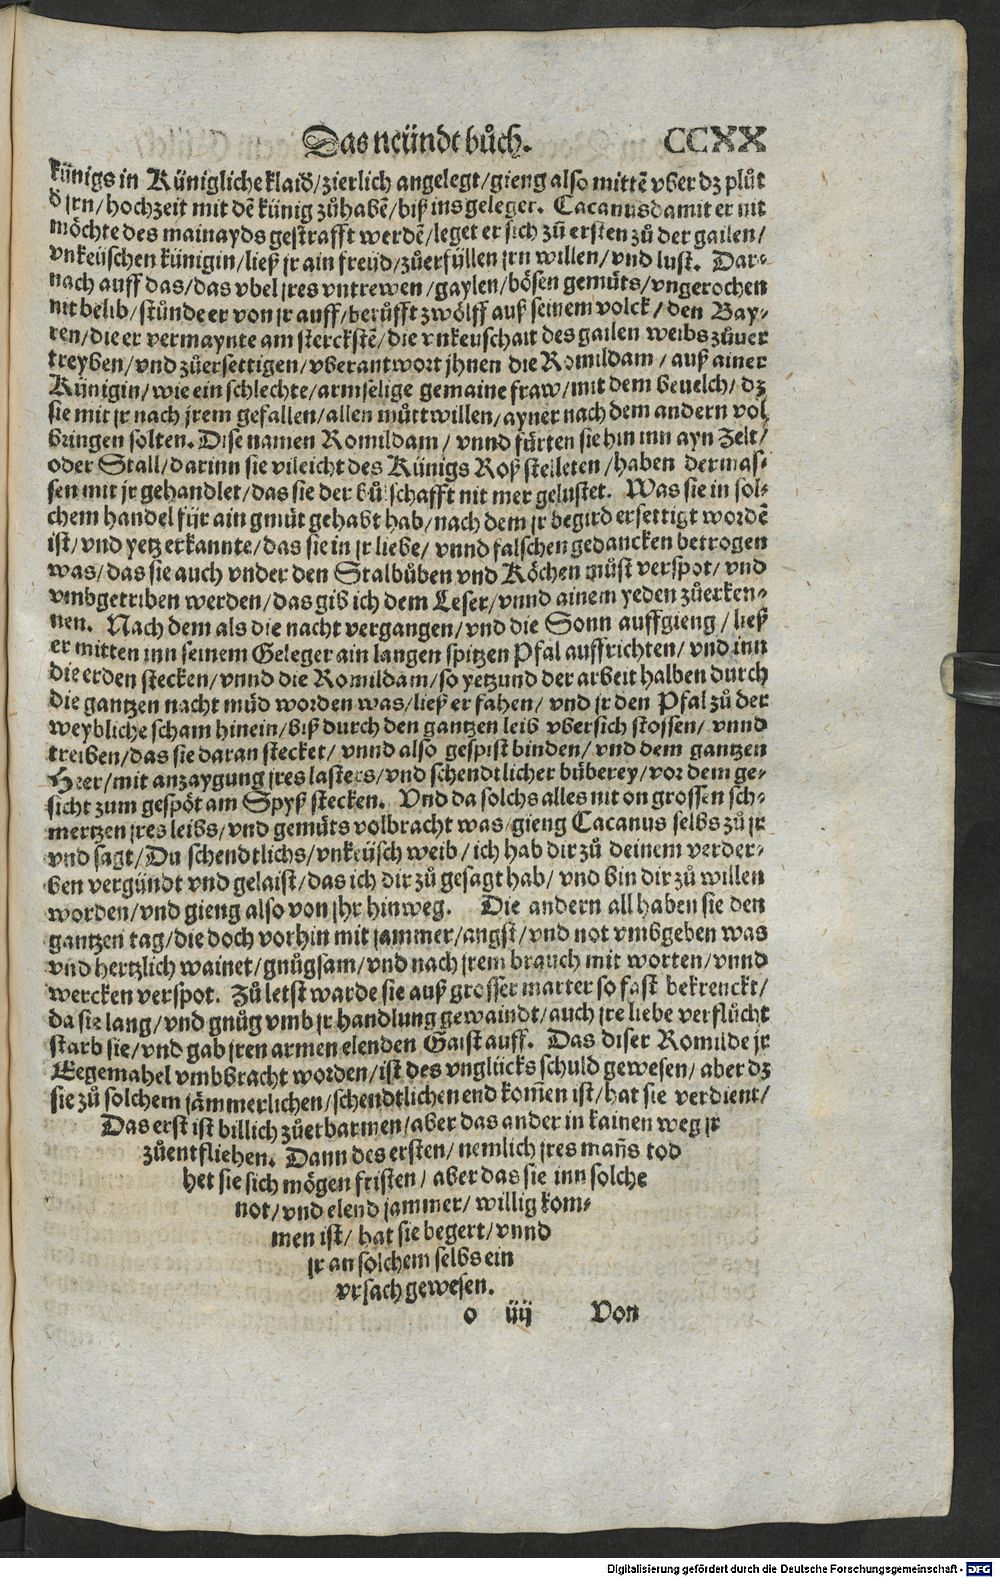 Das neündt bůch. CCXX
künigs in Künigliche klaid/zierlich angelegt/gieng also mittẽ vber dz plůt
d jrn/hochzeit mit dẽ künig zůhabẽ/biß ins geleger. Cacanus damit er nit
möchte des mainayds gestrafft werdẽ/leget er sich zů ersten zů der gailen/
vnkeüschen künigin/ließ jr ain freüd/zůerfüllen jrn willen/vnd lust. Dar-
nach auff das/das vbel jres vntrewen/gaylen/bösen gemüts/vngerochen
nit belib/stůnde er von jr auff/berůfft zwölff auß seinem volck/den Bay-
ren/die er vermaynte am sterckstẽ/die vnkeuschait des gailen weibs zůuer
treyben/vnd zůersettigen/vberantwort jhnen die Romildam/auß ainer
Künigin/wie ein schlechte/armselige gemaine fraw/mit dem beuelch/dz
sie mit jr nach jrem gefallen/allen můttwillen/ayner nach dem andern vol
bringen solten. Dise namen Romildam/vnnd fürten sie hin inn ayn Zelt/
oder Stall/darinn sie vileicht des Künigs Roß stelleten/haben dermas-
sen mit jr gehandlet/das sie der bůlschafft nit mer gelustet. Was sie in sol-
chem handel für ain gmüt gehabt hab/nach dem jr begird ersettigt wordẽ
ist/vnd yetz erkannte/das sie in jr liebe/vnnd falschen gedancken betrogen
was/das sie auch vnder den Stalbůben vnd Köchen můst verspot/vnd
vmbgetriben werden/das gib ich dem Leser/vnnd ainem yeden zůerken-
nen. Nach dem als die nacht vergangen/vnd die Sonn auffgieng/ließ
er mitten inn seinem Geleger ain langen spitzen Pfal auffrichten/vnd inn
die erden stecken/vnnd die Romildam/so yetzund der arbeit halben durch
die gantzen nacht müd worden was/ließ er fahen/vnd jr den Pfal zů der
weybliche scham hinein/biß durch den gantzen leib vbersich stossen/vnnd
treiben/das sie daran stecket/vnnd also gespist binden/vnd dem gantzen
Heer/mit anzaygung jres lasters/vnd schendtlicher bůberey/vor dem ge-
sicht zum gespöt am Spyß stecken. Vnd da solchs alles nit on grossen sch-
mertzen jres leibs/vnd gemüts volbracht was/gieng Cacanus selbs zů jr
vnd sagt/Du schendtlichs/vnkeüsch weib/ich hab dir zů deinem verder-
ben vergündt vnd gelaist/das ich dir zů gesagt hab/vnd bin dir zů willen
worden/vnd gieng also von jhr hinweg. Die andern all haben sie den
gantzen tag/die doch vorhin mit jammer/angst/vnd not vmbgeben was
vnd hertzlich wainet/gnůgsam/vnd nach jrem brauch mit worten/vnnd
wercken verspot. Zů letst warde sie auß grosser marter so fast bekrenckt/
da sie lang/vnd gnůg vmb jr handlung gewaindt/auch jre liebe verflůcht
starb sie/vnd gab jren armen elenden Gaist auff. Das diser Romilde jr
Eegemahel vmbbracht worden/ist des vnglücks schuld gewesen/aber dz
sie zů solchem jämmerlichen/schendtlichen end kom̃en ist/hat sie verdient/
Das erst ist billich zůerbarmen/aber das ander in kainen weg jr
zůentfliehen. Dann des ersten/nemlich jres mañs tod
het sie sich mögen fristen/aber das sie inn solche
not/vnd elend jammer/willig kom-
men ist/hat sie begert/vnnd
jr an solchem selbs ein
vrsach gewesen.
o iiij Von
Digitalisierung gefördert durch die Deutsche Forschungsgemeinschaft - DFG